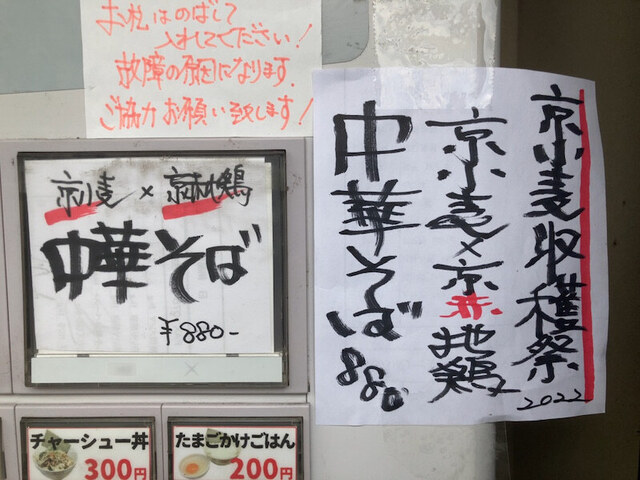 お札はのばして
入れてください!
故障の原因になります.
ご協力お願い致します!
京小麦×京赤地鶏
中華そば
¥880-
チャーシュー丼
300円
たまごかけごはん
200円
京小麦収穫祭
2022
京小麦×京赤地鶏
中華そば880